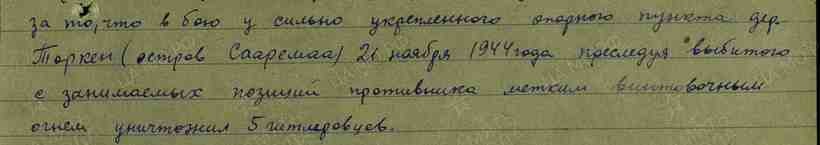 за то, что в бою у сильно укрепленного опорного пункта дер.
Торкен (остров Сааремаа) 21 ноября 1944 года преследуя выбитого
с занимаемых позиций противника метким винтовочным
огнем уничтожил 5 гитлеровцев.